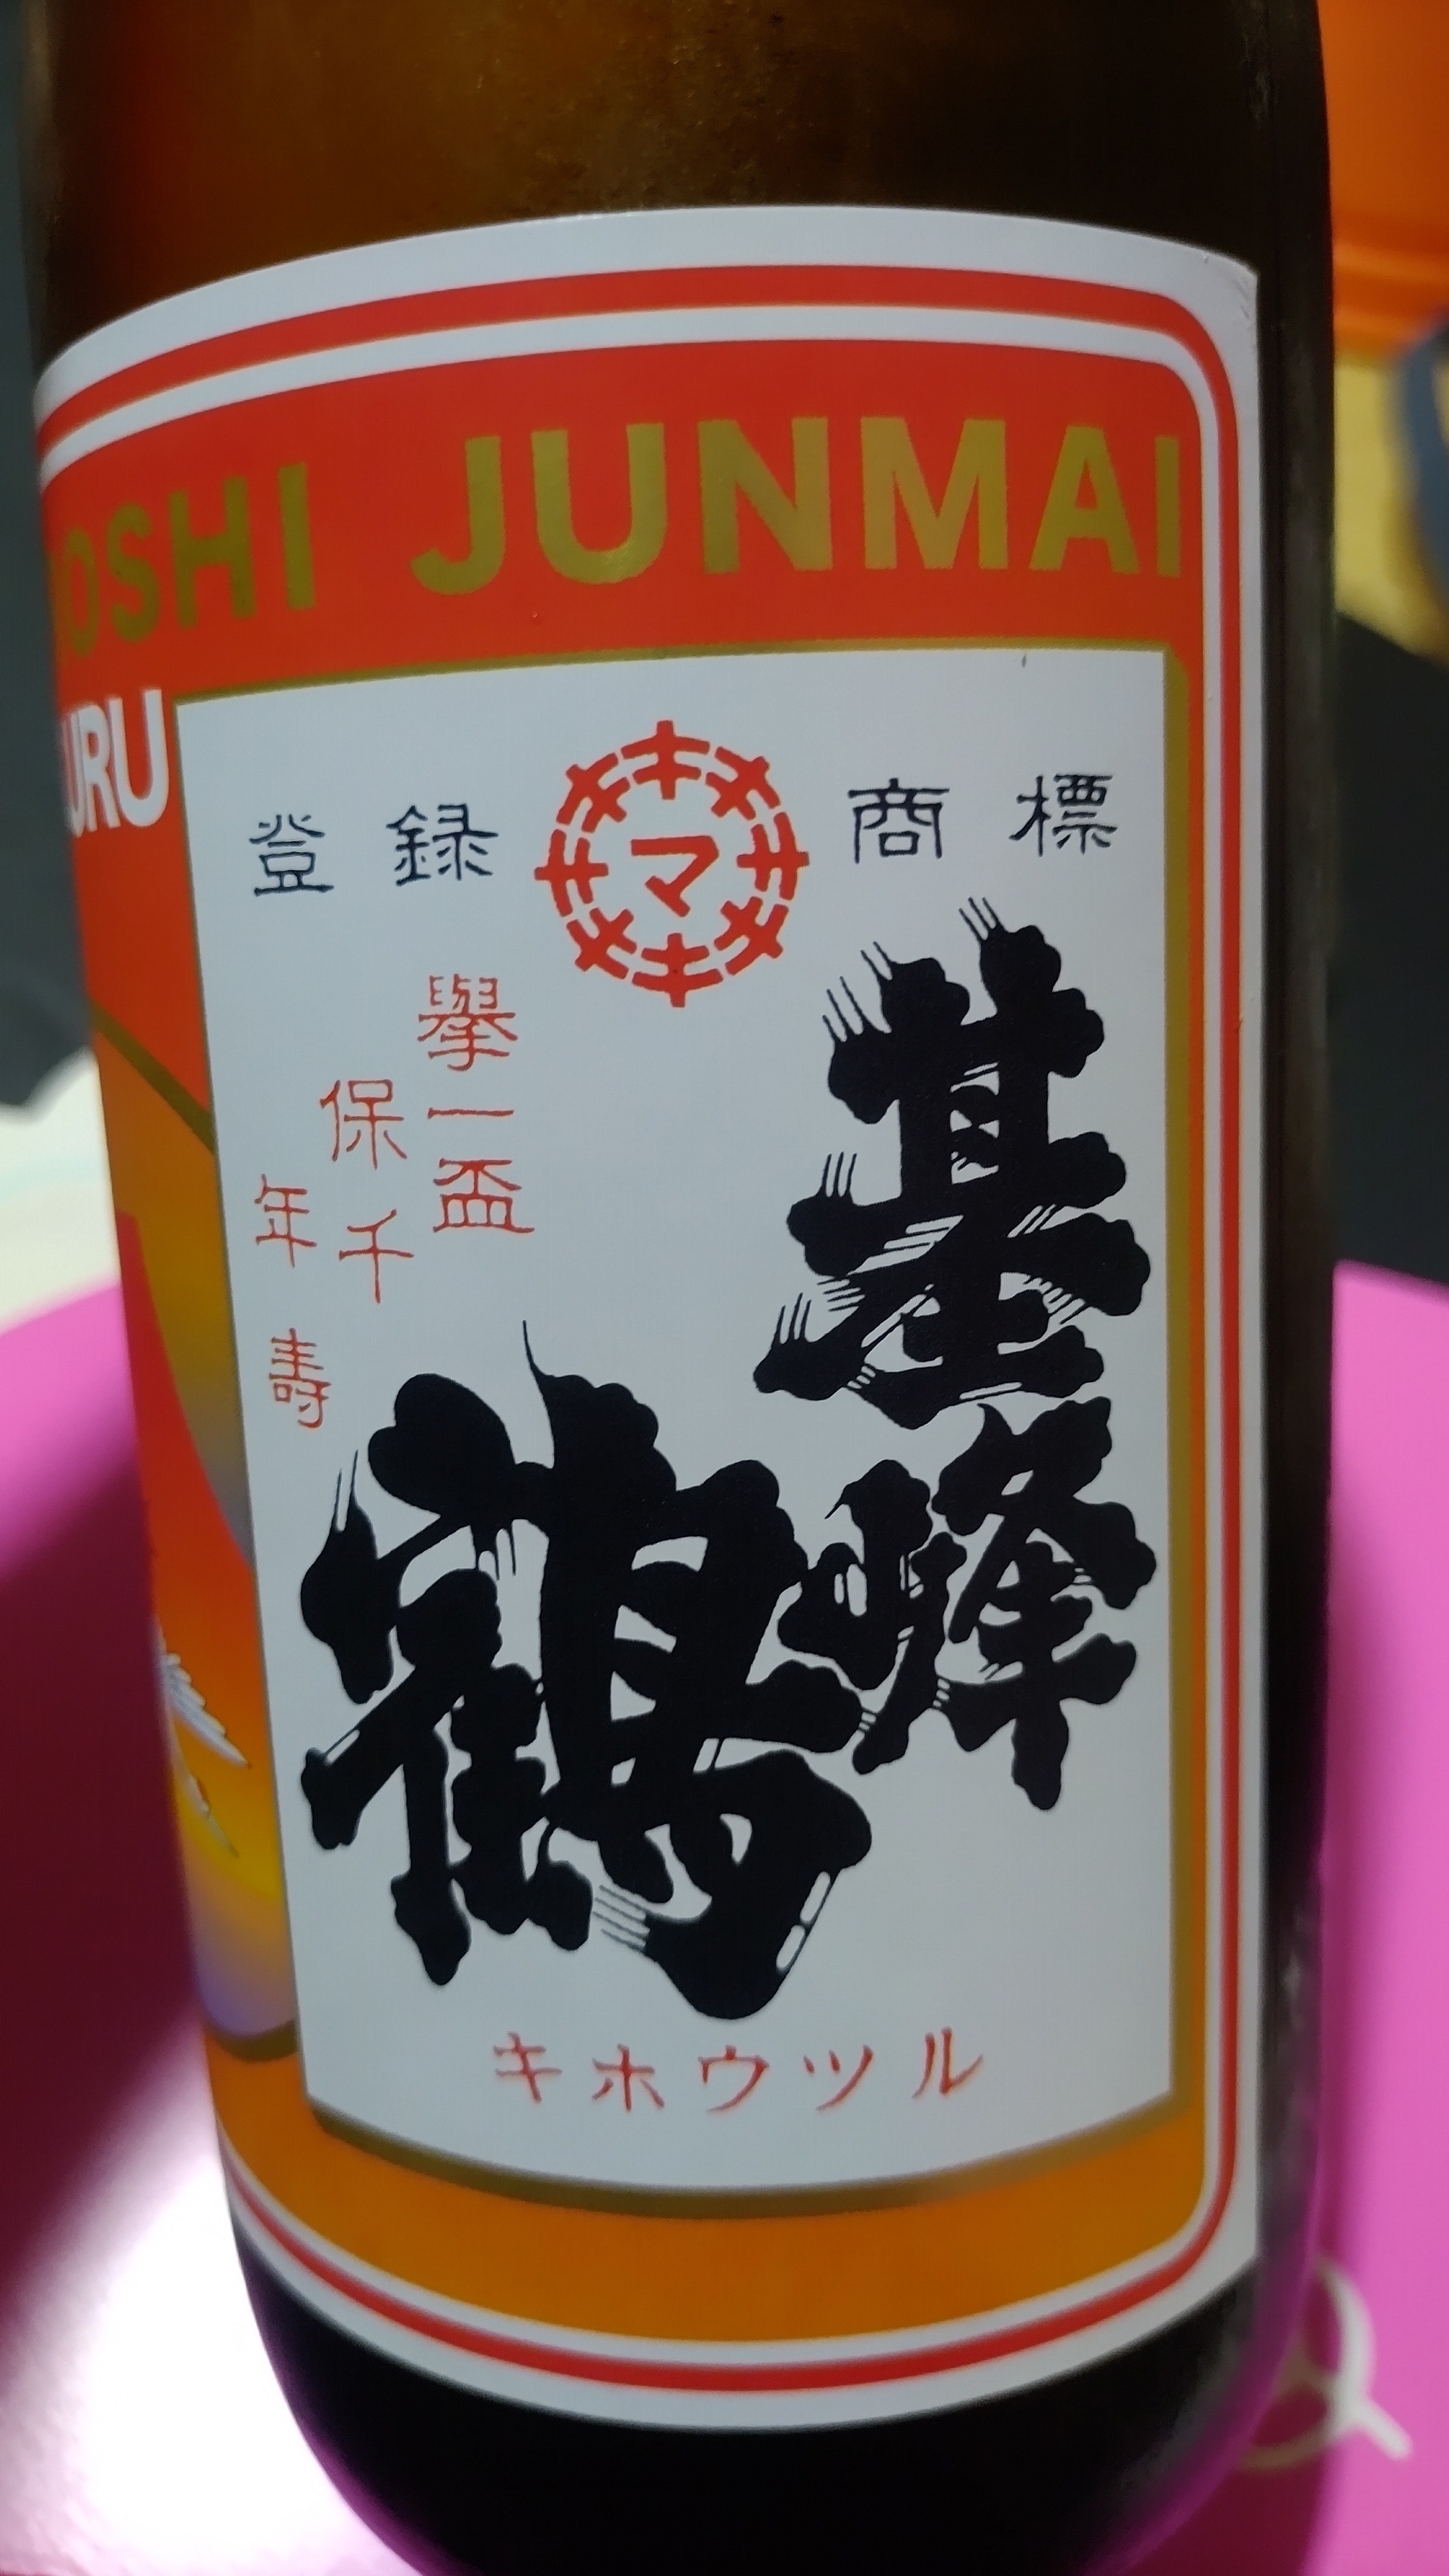 OSHI JUNMAI
URU
登録 マ 商標
基峰鶴
擧一盃
保千
年壽
キホウツル